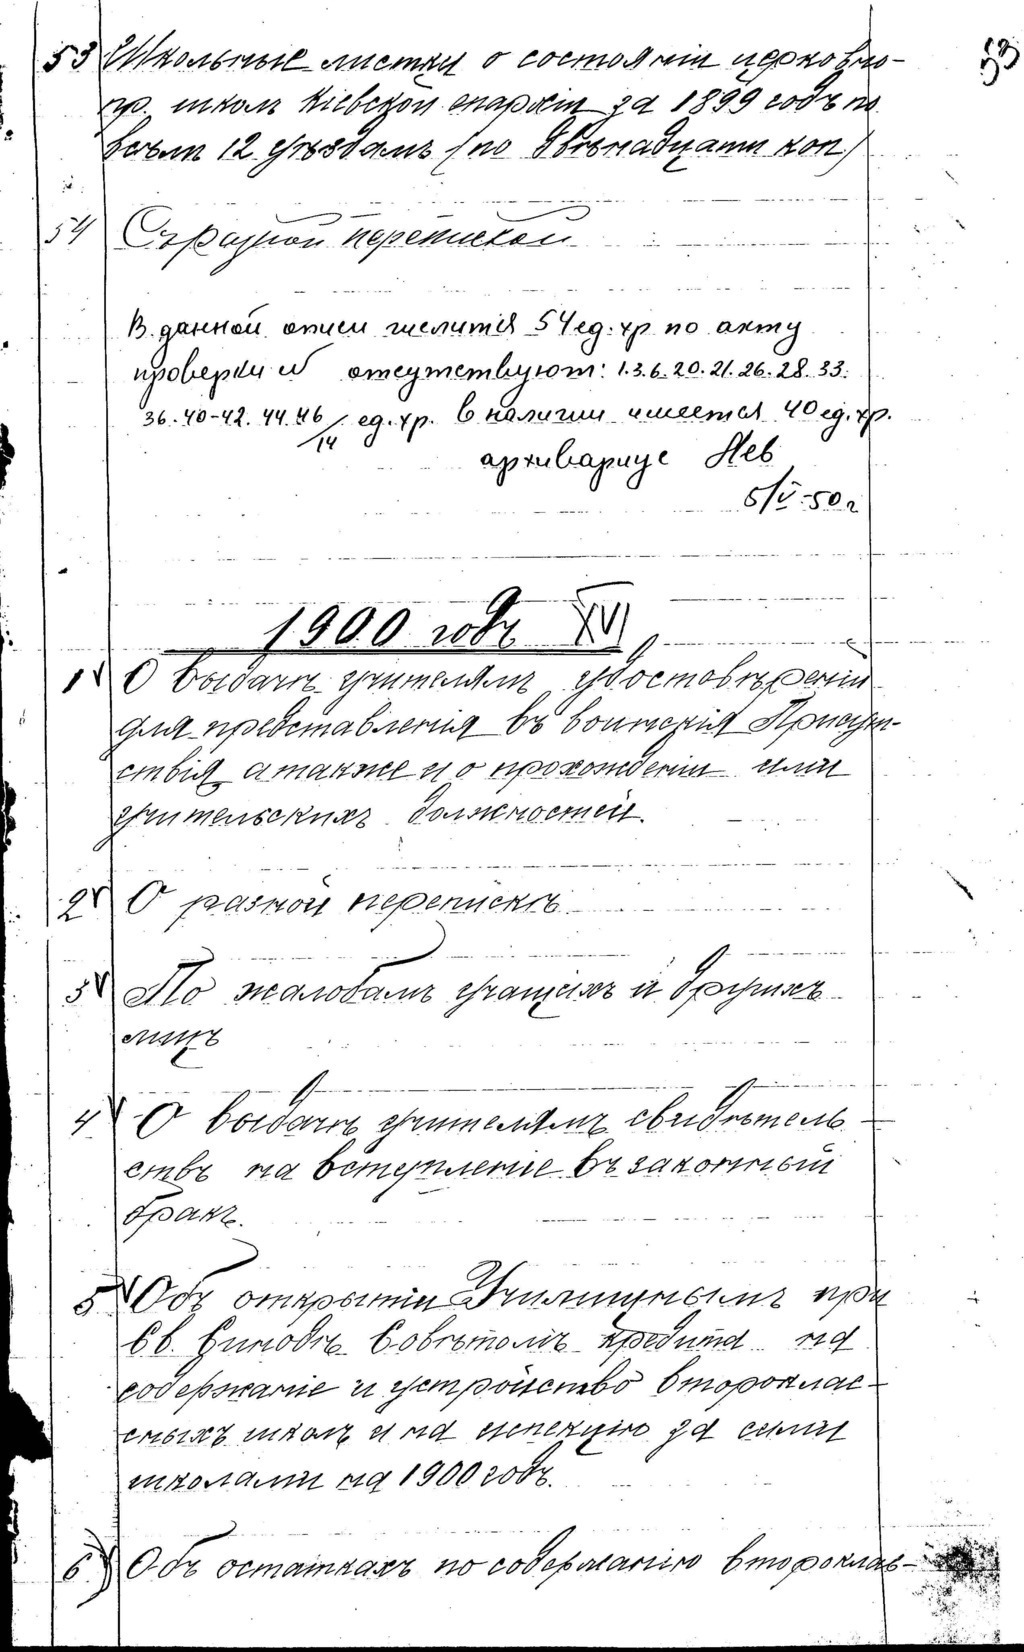 53
53 Школьные листки о состоянiи церковно-
пр. школъ Кiевской епархiи за 1899 годъ по
всѣмъ 12 уѣздамъ (по двѣнадцати коп.)
54 Съ разной перепиской
В данной описи числится 54 ед. хр. по акту
проверки № отсутствуют: 1.3.6.20.21.26.28.33.
36.40-42.44.46/14 ед. хр. в наличии имеется 40 ед. хр.
архивариус
5/V-50 г
1900 годъ XVI
1 О выдачѣ учителямъ удостовѣренiй
для представленiя въ воинскiя Присут-
ствiя а также и о прохожденiи ими
учительскихъ должностей.
2 О разной перепискѣ
3 По жалобамъ учащихъ и другихъ
лицъ
4 О выдачѣ учителямъ свидѣтель-
ствъ на вступленiе въ законный
бракъ.
5 Объ открытiи Училищнымъ при
Св. Синодѣ Совѣтомъ кредита на
содержанiе и устройство второклас-
сныхъ школъ и на инспекцiю за сими
школами на 1900 годъ.
6) Объ остаткахъ по содержанiю второклас-